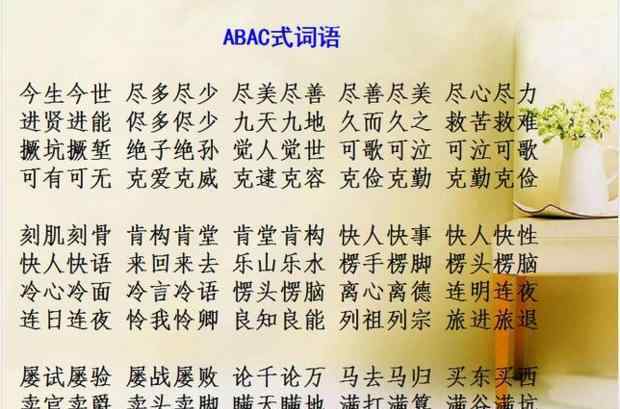 ABAC式词语
今生今世 尽多尽少 尽美尽善 尽善尽美 尽心尽力
进贤进能 侭多侭少 九天九地 久而久之 救苦救难
撅坑撅堑 绝子绝孙 觉人觉世 可歌可泣 可泣可歌
可有可无 克爱克威 克逮克容 克俭克勤 克勤克俭
刻肌刻骨 肯构肯堂 肯堂肯构 快人快事 快人快性
快人快语 来回来去 乐山乐水 楞手楞脚 楞头楞脑
冷心冷面 冷言冷语 愣头愣脑 离心离德 连明连夜
连日连夜 怜我怜卿 良知良能 列祖列宗 旅进旅退
屡试屡验 屡战屡败 论千论万 马去马归 买东买西
卖官卖爵 卖头卖脚 瞒天瞒地 满打满算 满谷满坑